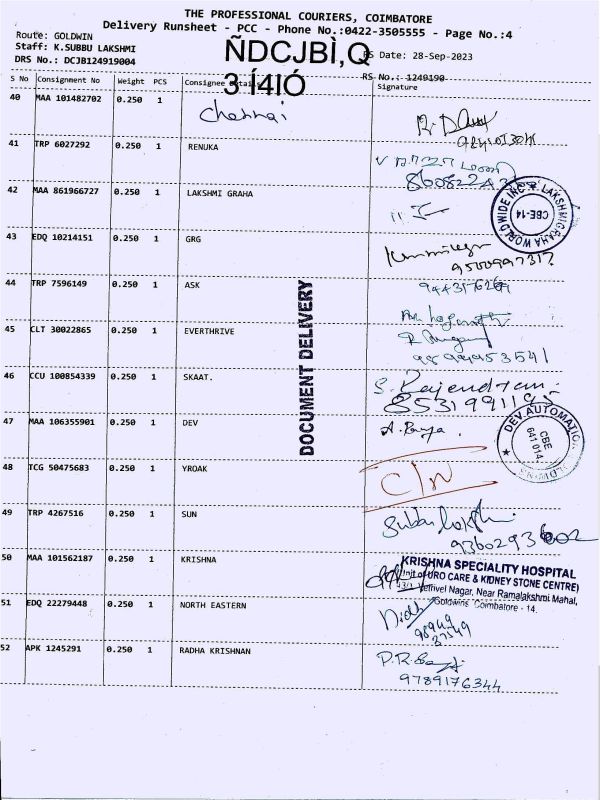 THE PROFESSIONAL COURIERS, COIMBATORE
Delivery Runsheet - PCC - Phone No.:0422-3505555 - Page No.:4
Route: GOLDWIN
Staff: K.SUBBU LAKSHMI
DRS No.: DCJB124919004
ÑDCJBÌ,Q
3 Í4IÓ
RS Date: 28-Sep-2023
RS No.: 1249190
S No Consignment No Weight PCS Consignee Details Signature
40 MAA 101482702 0.250 1 Chennai
41 TRP 6027292 0.250 1 RENUKA
42 MAA 861966727 0.250 1 LAKSHMI GRAHA
LAKSHMIGRAHA WORLDWIDE INC
CBE-14
43 EDQ 10214151 0.250 1 GRG
9500997317
44 TRP 7596149 0.250 1 ASK
45 CLT 30022865 0.250 1 EVERTHRIVE
46 CCU 100854339 0.250 1 SKAAT. S. Rajendran
47 MAA 106355901 0.250 1 DEV
DEV AUTOMATION
CBE
641 014.
48 TCG 50475683 0.250 1 YROAK C/N
49 TRP 4267516 0.250 1 SUN
50 MAA 101562187 0.250 1 KRISHNA
KRISHNA SPECIALITY HOSPITAL
(Unit of URO CARE & KIDNEY STONE CENTRE)
Vetrivel Nagar, Near Ramalakshmi Mahal,
Goldwins, Coimbatore - 14.
51 EDQ 22279448 0.250 1 NORTH EASTERN
52 APK 1245291 0.250 1 RADHA KRISHNAN
9789176344
DOCUMENT DELIVERY